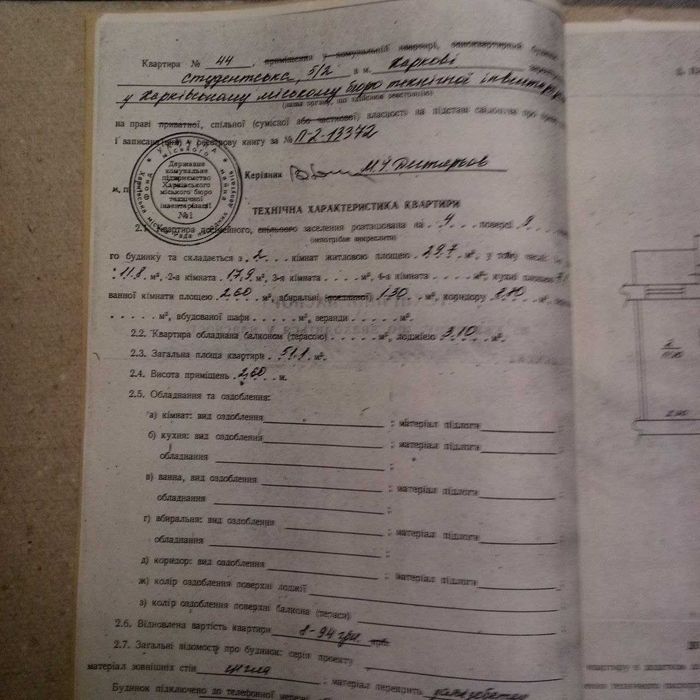 Квартира № 44, приміщення у комунальній квартирі, одноквартирний будинок
студентська, 5/2 в м. Харкові
у Харківському міському бюро технічної інвентаризації
(назва органу, що здійснює реєстрацію)
на праві приватної, спільної (сумісної або часткової) власності на підставі свідоцтва про право
і записана в реєстрову книгу за № П-2-13372
Державне
комунальне
підприємство
Харківського
міського бюро
технічної
інвентаризації
№1
Керівник
м. п.
ТЕХНІЧНА ХАРАКТЕРИСТИКА КВАРТИРИ
2.1. Квартира посімейного, спільного заселення розташована на 4 поверсі 9
(непотрібне закреслити)
го будинку та складається з 2 кімнат житловою площею 29.7 м², у тому числі
11.8 м², 2-а кімната 17.9 м², 3-я кімната . . . . м², 4-а кімната . . . . м², кухні площею
ванної кімнати площею 2.60 м², вбиральні (поєднаної) 1.30 м², коридору м²,
. . . . . м², вбудованої шафи . . . . . м², веранди . . . . . м².
2.2. Квартира обладнана балконом (терасою) . . . . . м², лоджією 3.10 м².
2.3. Загальна площа квартири 51.1 м².
2.4. Висота приміщень 2.60 м.
2.5. Обладнання та оздоблення:
а) кімнат: вид оздоблення ; матеріал підлоги ;
б) кухня: вид оздоблення ; матеріал підлоги ;
обладнання ;
в) ванна, вид оздоблення ; матеріал підлоги ;
обладнання ;
г) вбиральня: вид оздоблення ; матеріал підлоги ;
обладнання ;
д) коридор: вид оздоблення ; матеріал підлоги ;
ж) колір оздоблення поверхні лоджії ;
з) колір оздоблення поверхні балкона (тераси)
2.6. Відновлена вартість квартири 8-94 грн. крб.
2.7. Загальні відомості про будинок: серія проекту
матеріал зовнішніх стін цегла ; матеріал перекрить залізобетон
Будинок підключено до телефонної мережі